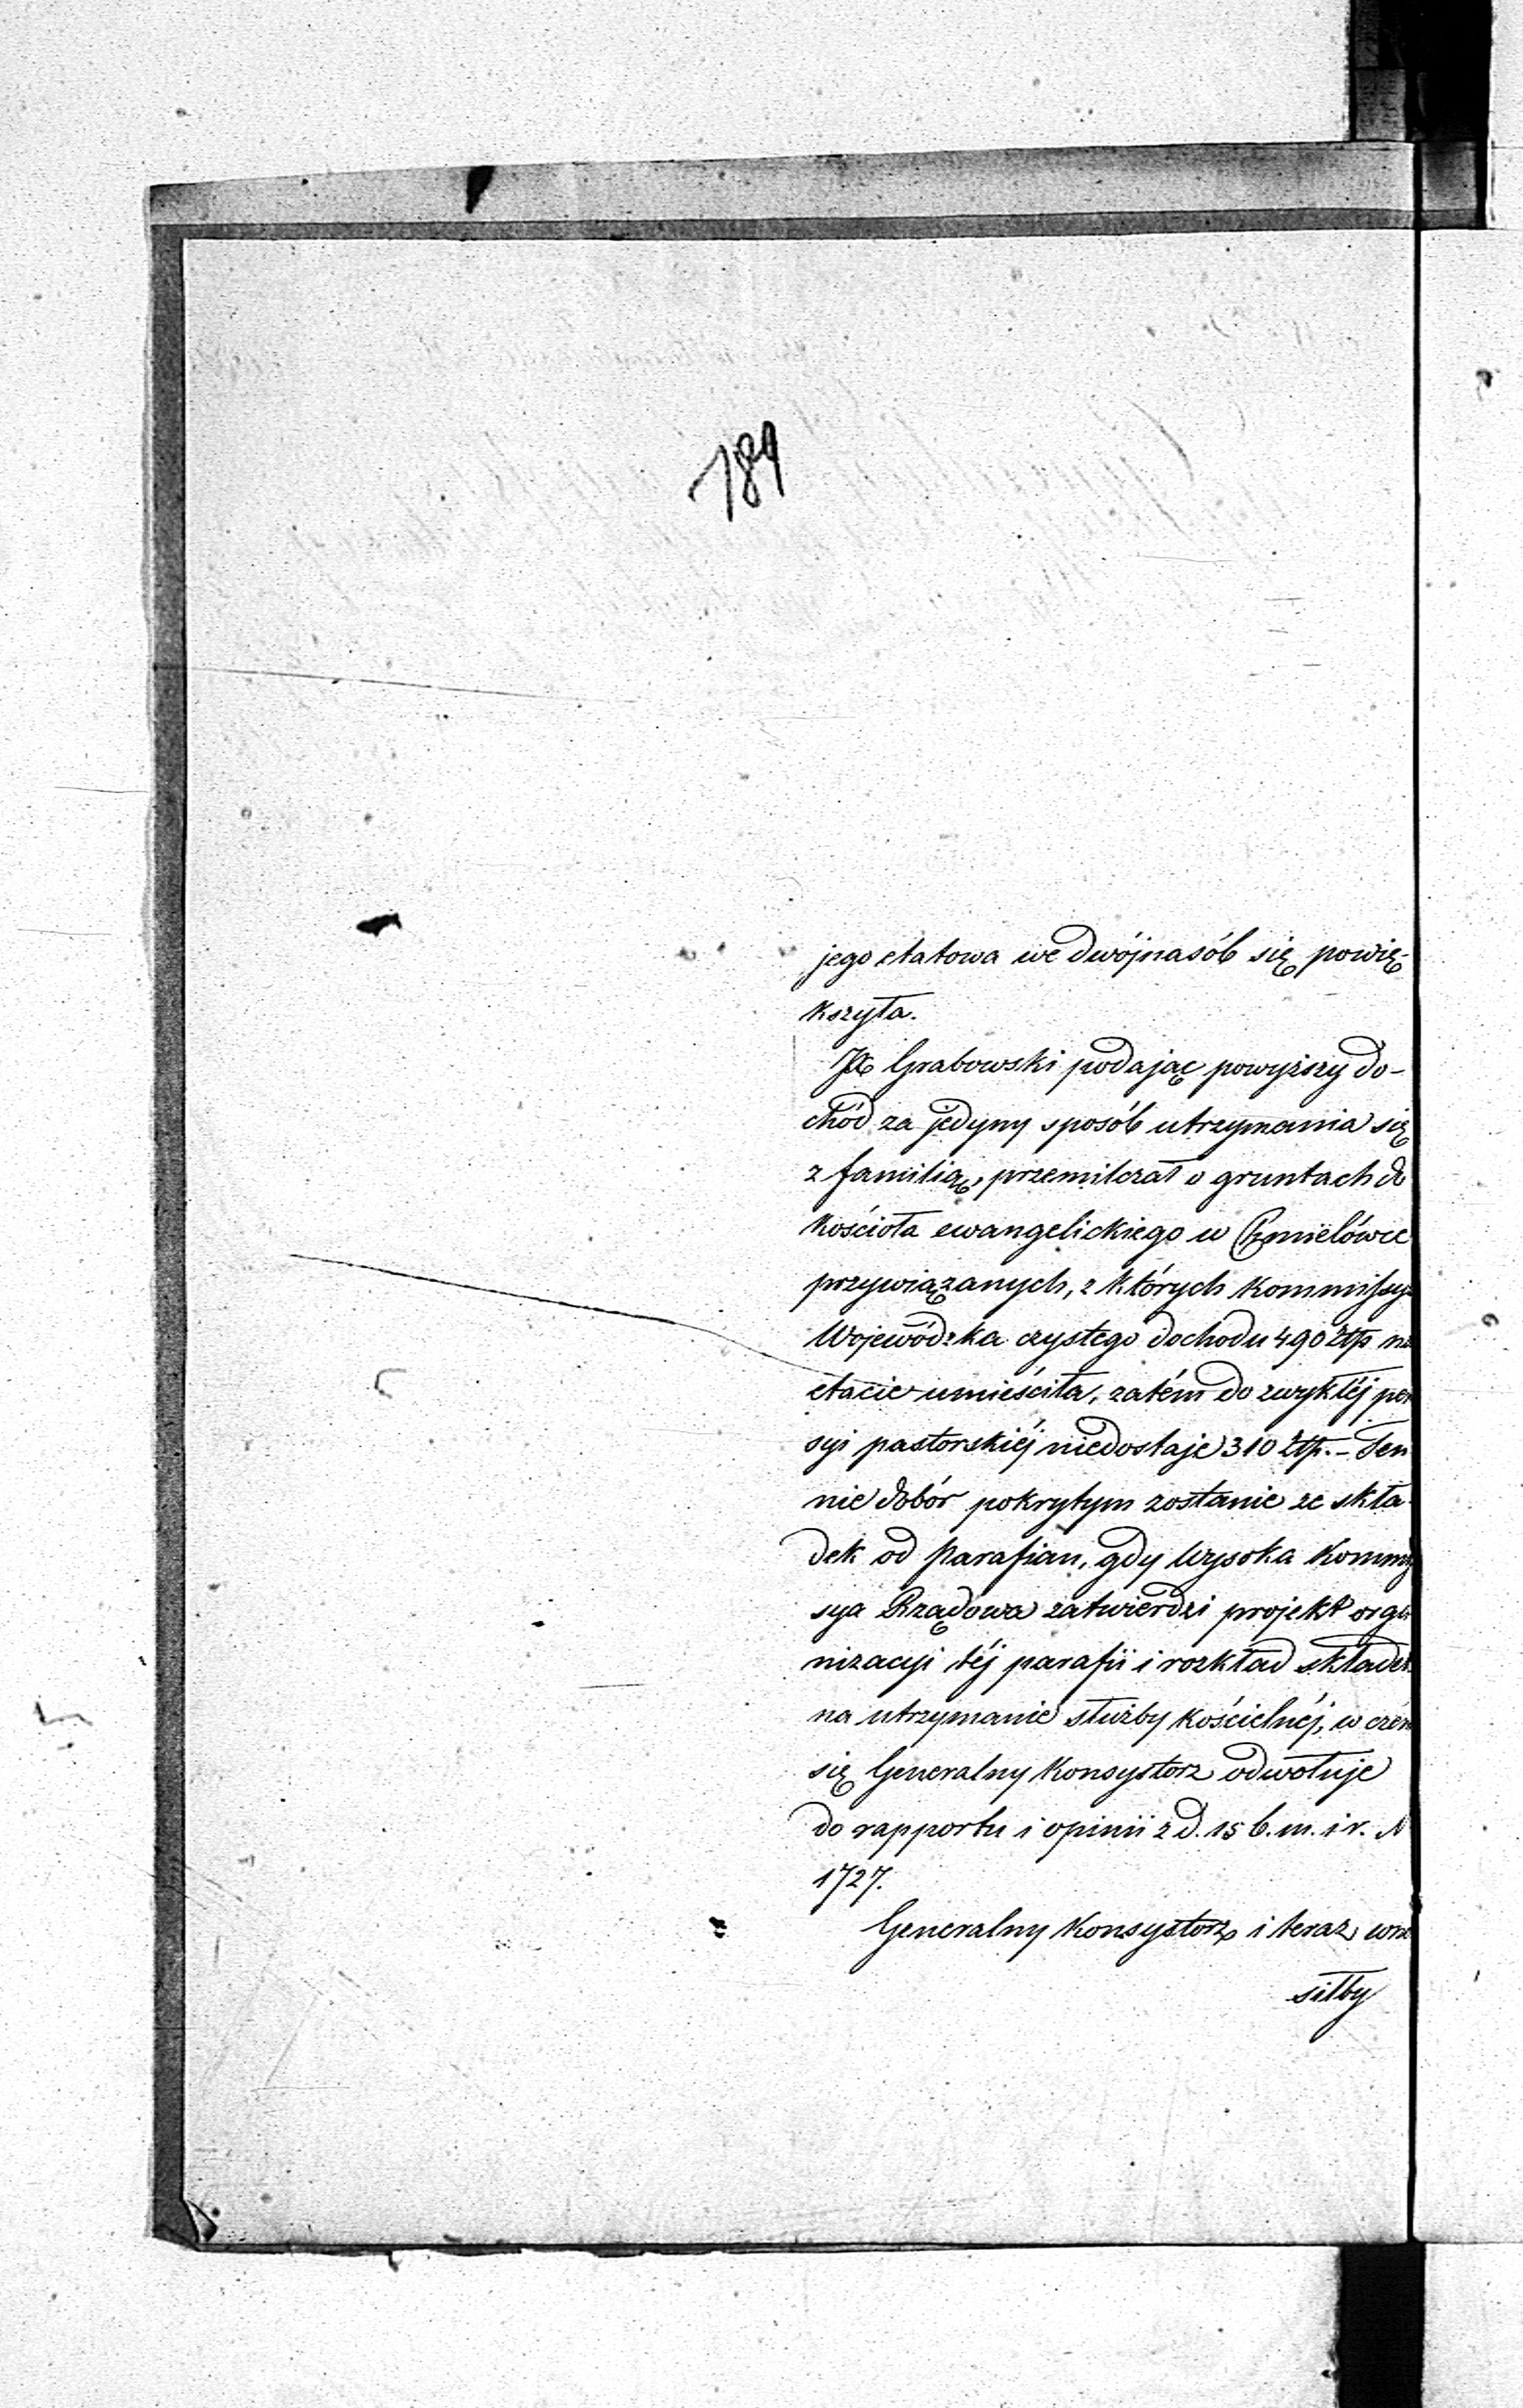 189
jego etatowa we dwójnasób się powię-
kszyła.
JX Grabowski podając powyższy do-
chód za jedyny sposób utrzymania się
z familią, przemilczał o gruntach do
kościoła ewangelickiego w Chmielówce
przywiązanych, z których Kommissya
Wojewódzka czystego dochodu 490 Złp na
etacie umieściła, zatém do zwykłéj pen
syi pastorskiéj niedostaje 310 Złp. – Ten
niedobór pokrytym zostanie ze skła-
dek od Parafian, gdy Wysoka Kommis
sya Rządowa zatwierdzi projekt orga
nizacyi téj parafii i rozkład składek
na utrzymanie służby kościelnéj, w czém
się Generalny Konsystorz odwołuje
do rapportu i opinii z d. 15 b. m. i r. N
1727.
Generalny Konsystorz i teraz wno
siłby